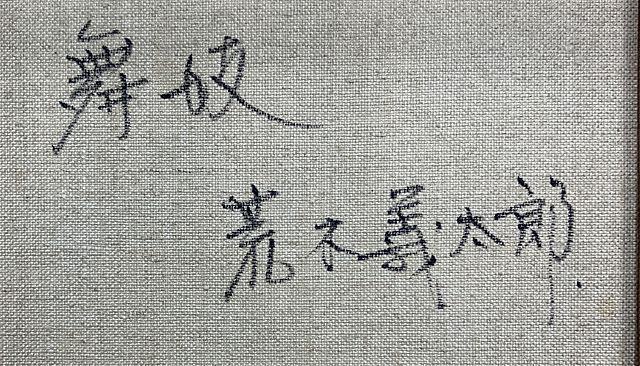 舞妓
荒木義太郎